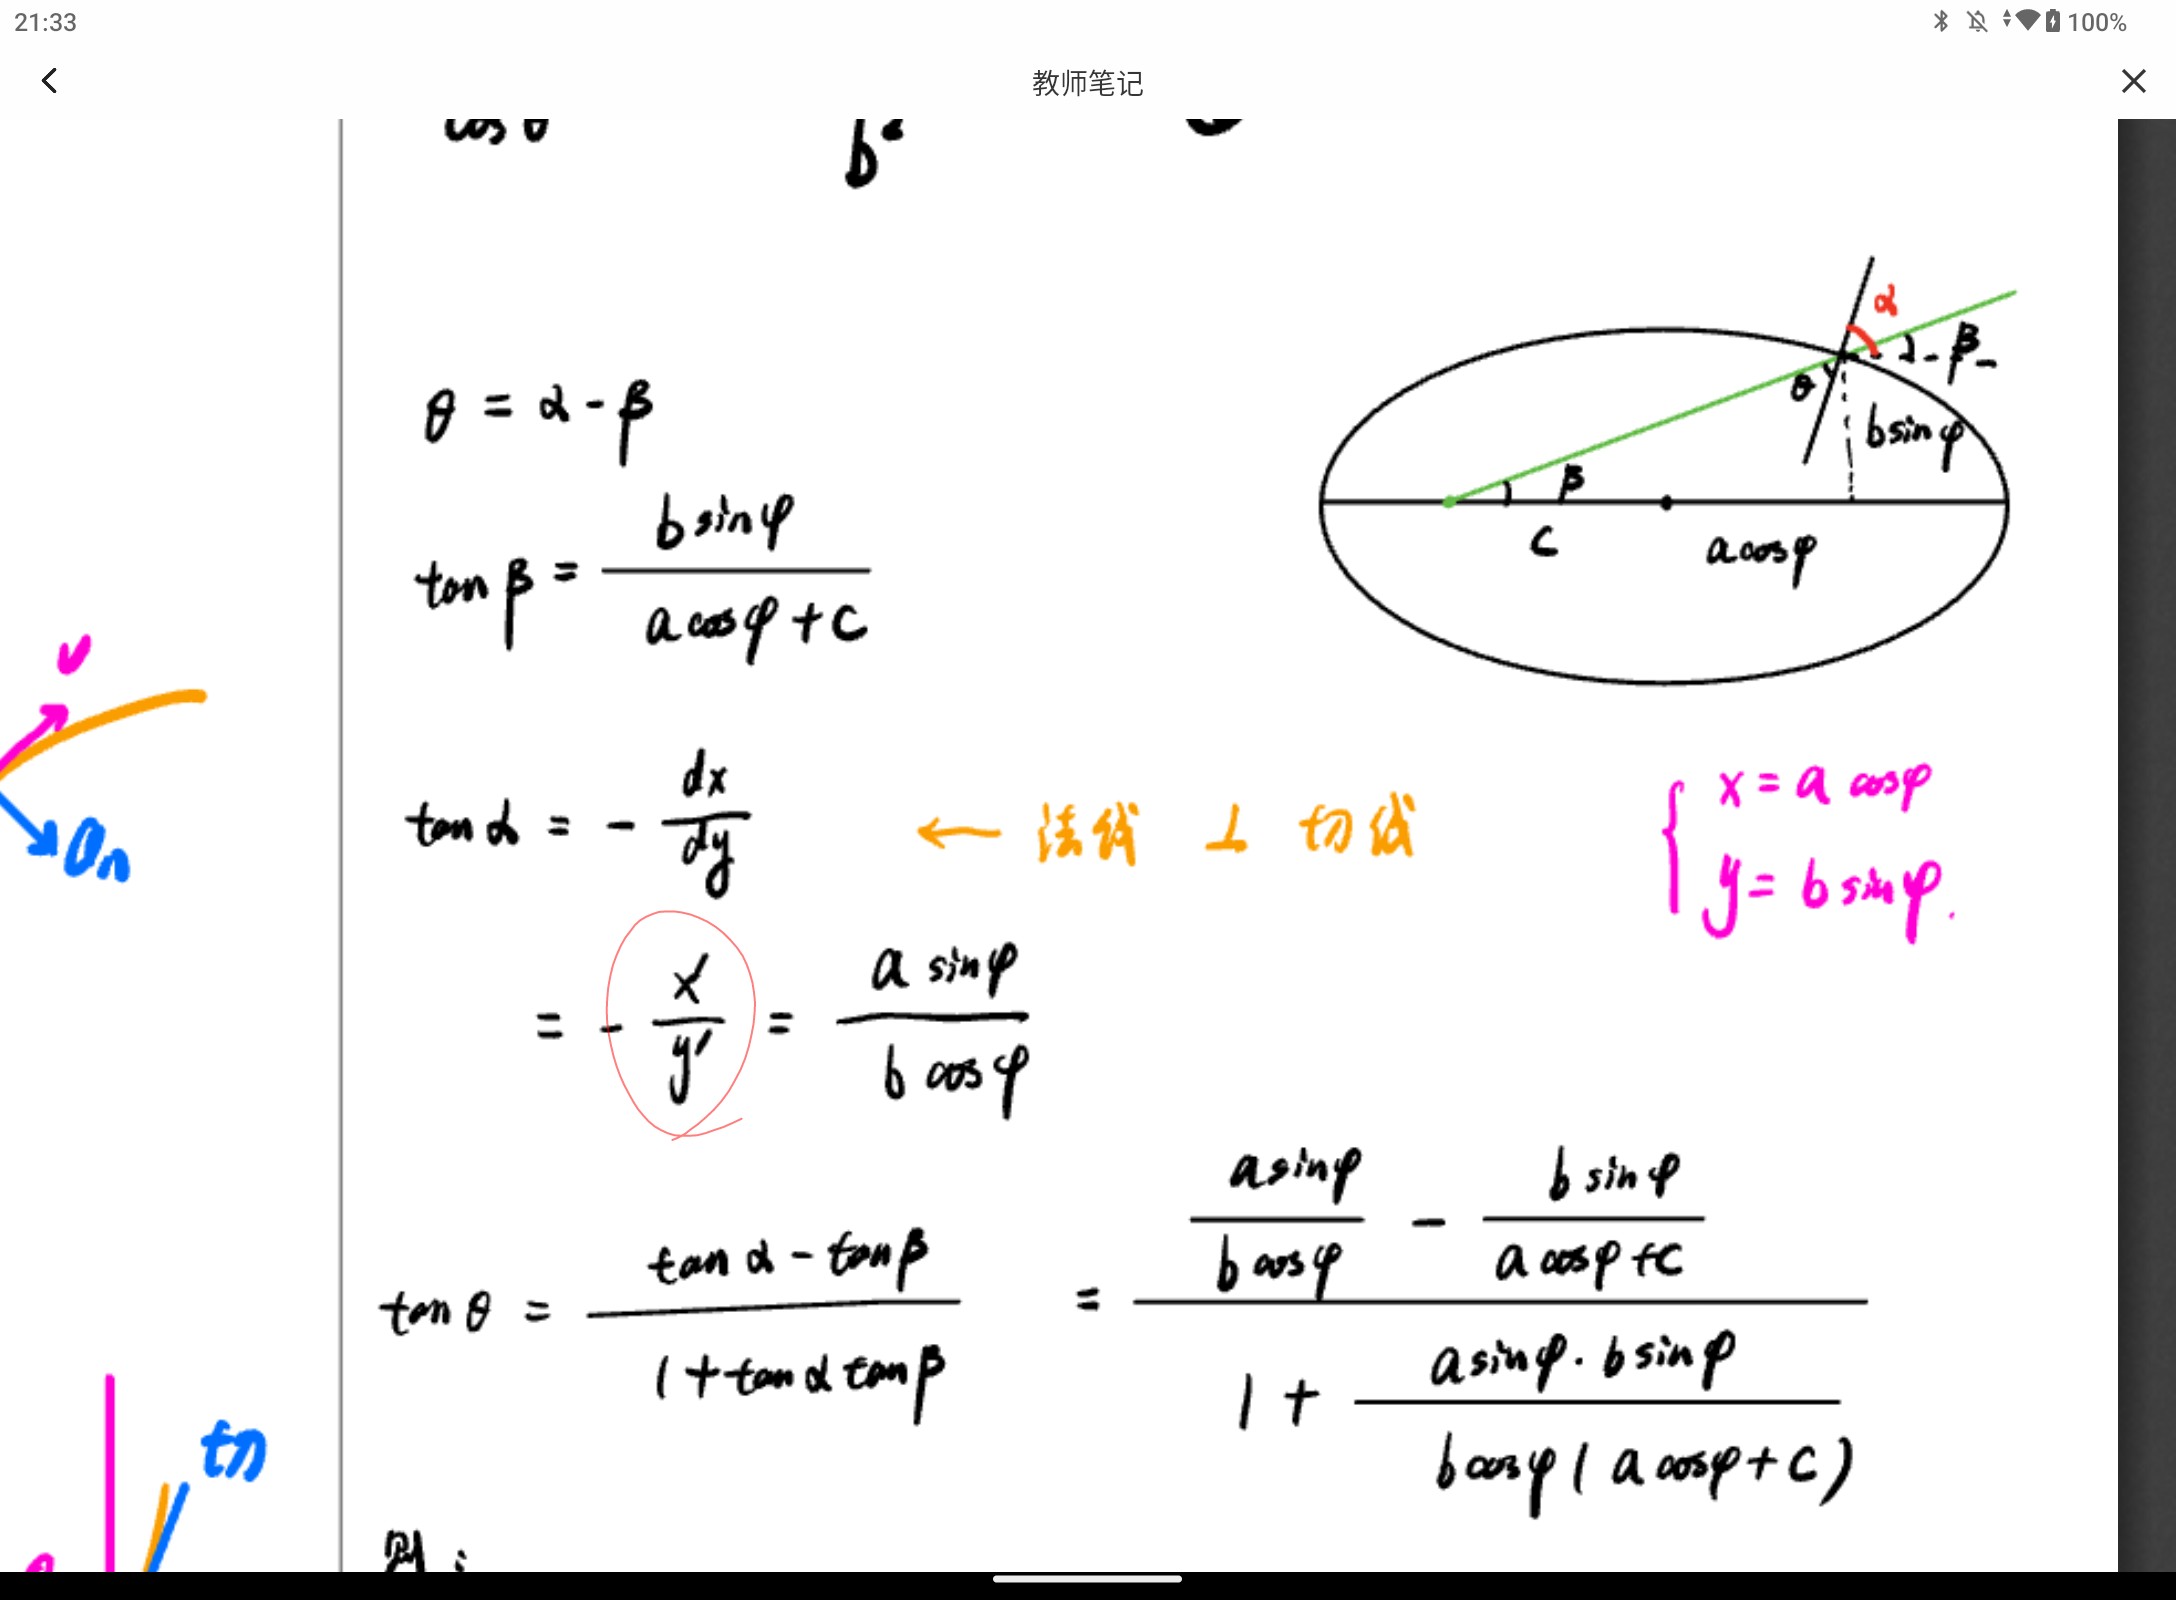 21:33
100%
教师笔记
cos θ
b²
α
β
α-β
θ
b sin φ
β
c
a cos φ
θ = α - β
tan β = b sin φ / a cos φ + c
v
aₙ
tan α = - dx / dy ← 法线 ⊥ 切线
x = a cos φ
y = b sin φ.
= - x' / y' = a sin φ / b cos φ
tan θ = tan α - tan β / 1 + tan α tan β = a sin φ / b cos φ - b sin φ / a cos φ + c / 1 + a sin φ · b sin φ / b cos φ ( a cos φ + c )
切
则: